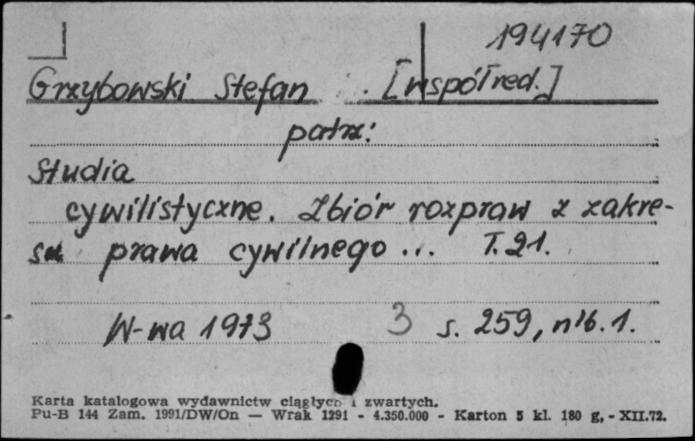 194170
Grzybowski Stefan . [współred.]
patrz:
Studia
cywilistyczne. Zbiór rozpraw z zakre-
su prawa cywilnego ... T.21.
W-wa 1973 3 s. 259, nlb. 1.
Karta katalogowa wydawnictw ciągłych i zwartych.
Pu-B 144 Zam. 1991/DW/On — Wrak 1291 - 4.350.000 - Karton 5 kl. 180 g, - XII.72.